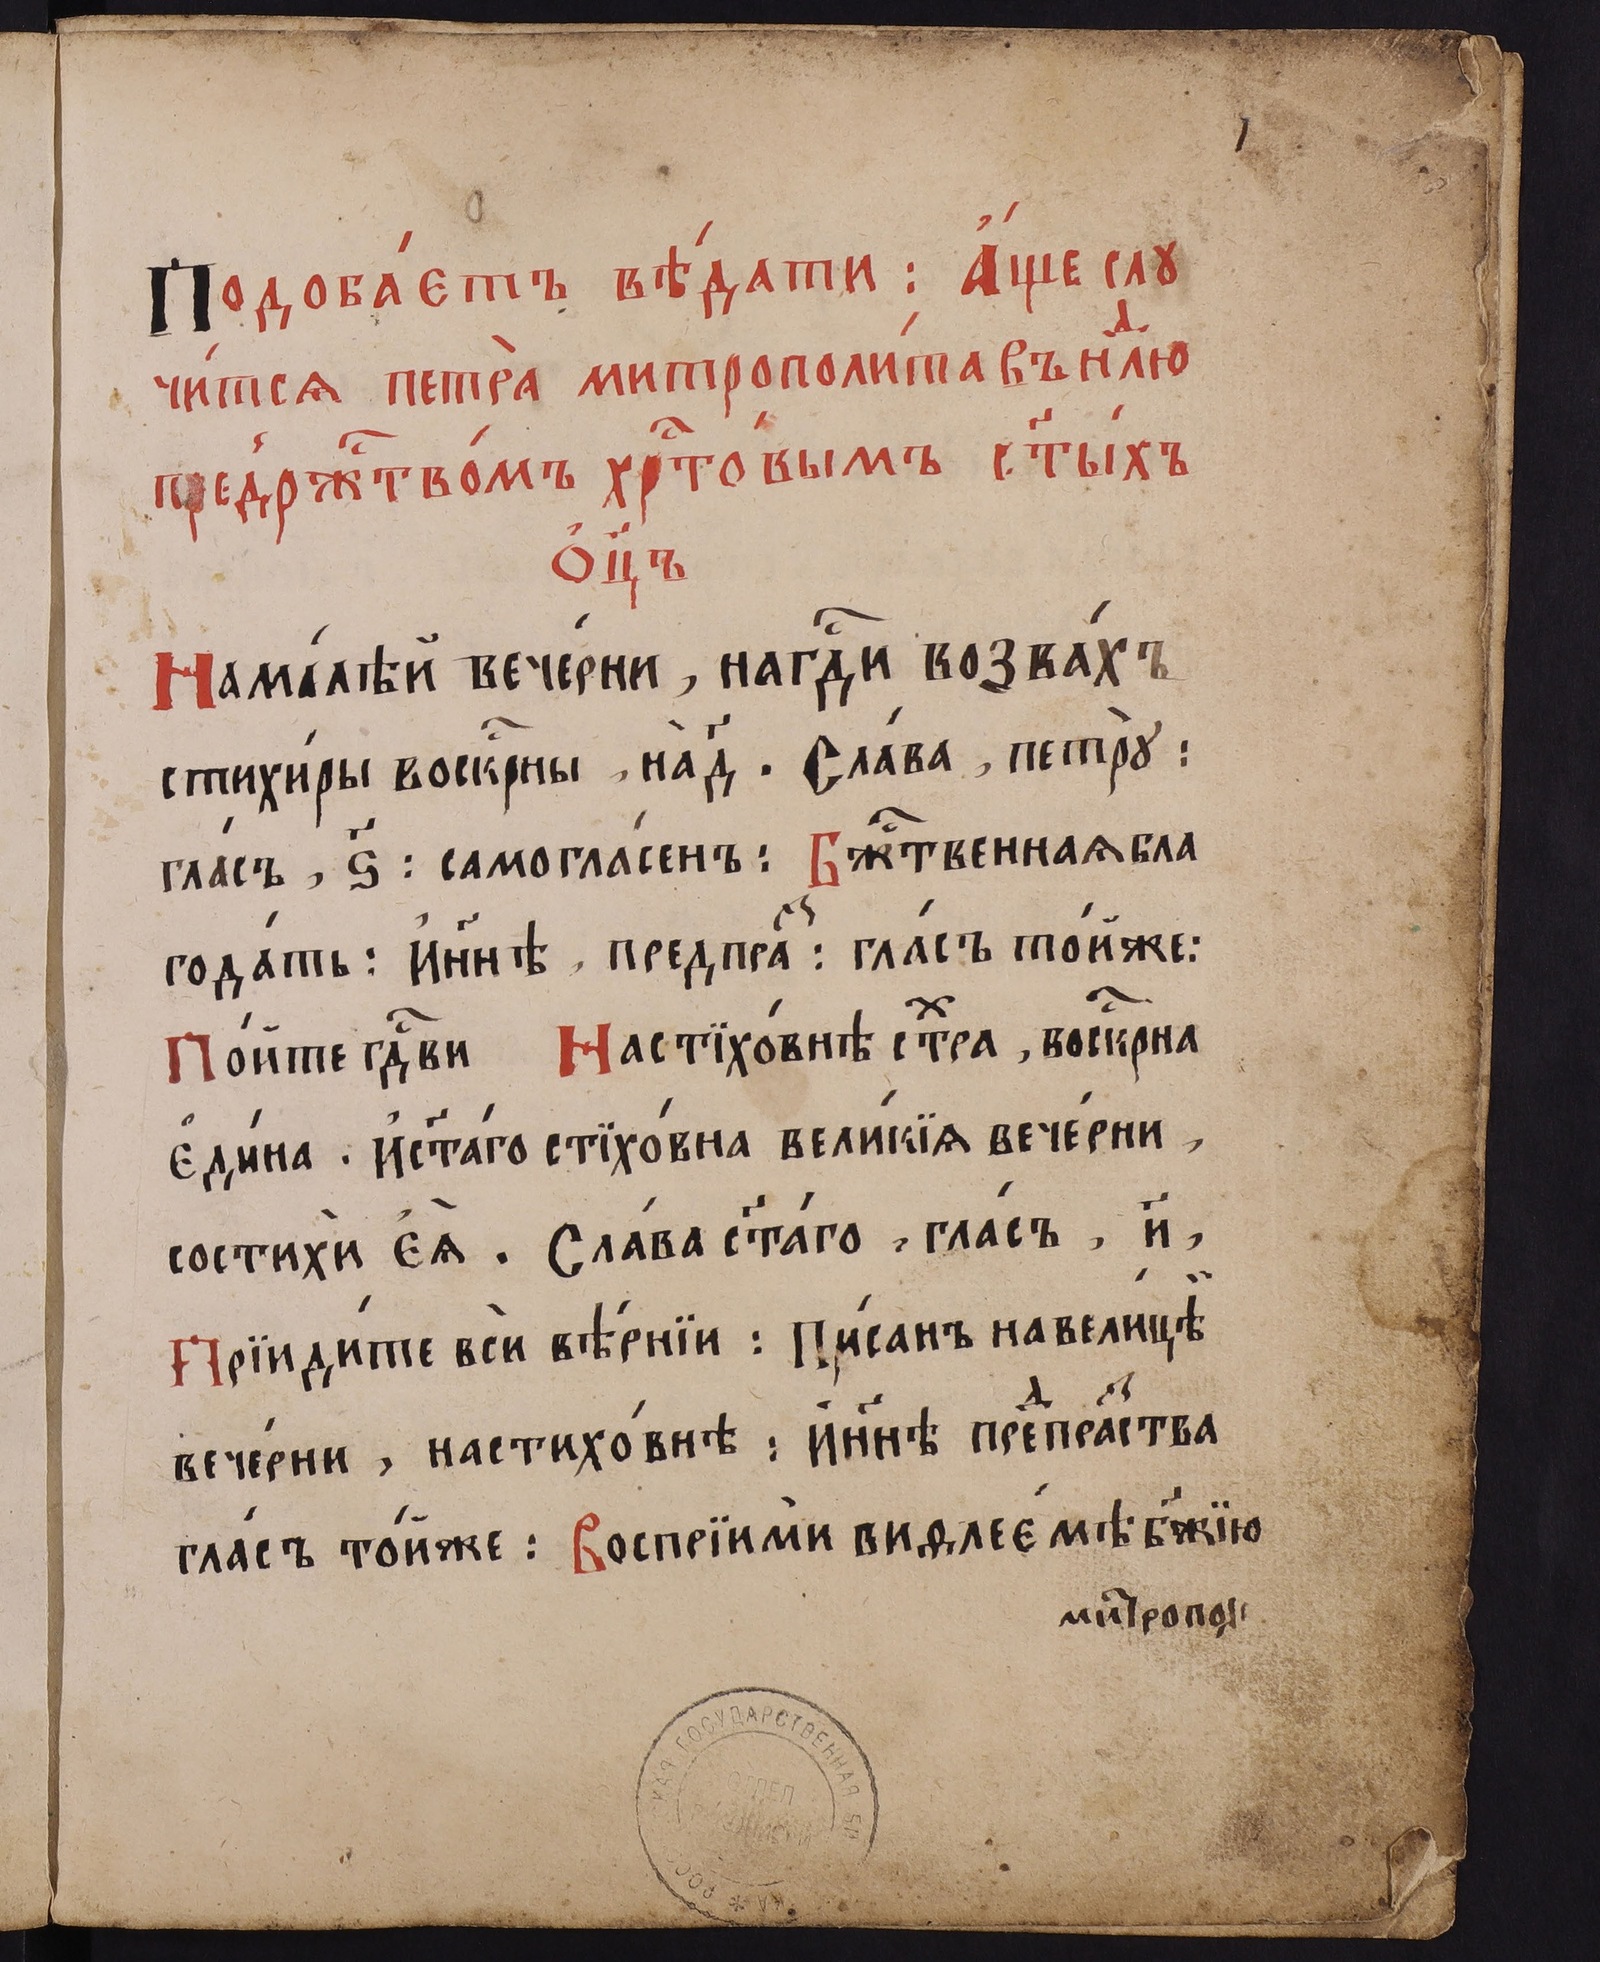 1
Подоба́етъ вѣ́дати : А҆́ще слꙋ
чи́тсѧ петра̀ митрополи́та въ нⷣлю
пред̾ржⷭ҇тво́мъ хрⷭ҇то́вымъ ст҃ы́хъ
ѻ҆ц҃ъ
На ма́лѣй вече́рни , на гдⷭ҇и возва́хъ
стихи́ры воскрⷭ҇ны , на̀ д҃ . Сла́ва , петрꙋ̀ :
гла́съ , ѕ҃ : самогла́сенъ : Бжⷭ҇твеннаѧ бла
года́ть : И҆ нн҃ѣ , предпраⷥ : гла́съ то́йже :
По́йте гдⷭ҇ви На стїхо́внѣ стⷯра , воскрⷭ҇на
є҆ди́на . И҆ ст҃а́го стїхо́вна вели́кїѧ вече́рни ,
со стихѝ є҆ѧ̀ . Сла́ва ст҃а́го , гла́съ , и҃ ,
Прїиди́те всѝ вѣ́рнїи : Пи́санъ на вели́цѣй
вече́рни , на стихо́внѣ : И҆ нн҃ѣ преⷣпраⷥства
гла́съ то́йже : Воспрїимѝ виѳлее́ме бж҃їю
митропол
ГОСУДАРСТВЕННАЯ БИ
ОТДЕЛ